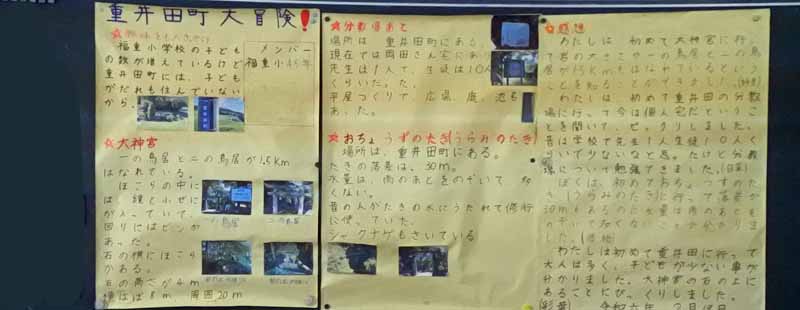 重井田町大冒険!
☆興味をもったきっかけ
福重小学校の子ども
の数が増えているけど
重井田町には、子ども
がだれも住んでいない
から。
メンバー
福重小4・5年
☆大神宮
一の鳥居と二の鳥居が1.5Km
はなれている。
ほこらの中に
は 鏡と小ぜに
が入っていて、
回りにはビンが
あった。
石の横にほこら
がある。
石の高さが4m
横はば8m 周囲20m
一の鳥居
二の鳥居
☆分教場あと
場所は 重井田町にある。
現在では岡田さん宅にあり
先生は1人で、生徒は10人
くらいだった。
平屋づくりで、広場、庭、池も
あった。
☆おちょうずのたき(うらみのたき)
場所は、重井田町にある。
たきの落差は、30m。
水量は、雨のあとをのぞいて 多
くない。
昔の人がたきの水にうたれて修行
に使っていた。
シャクナゲもさいている
☆感想
わたしは 初めて大神宮に行
居が1.5kmもはなれているという
ことを知ることができました。
わたしは 初めて重井田の分教
場に行って今は個人宅だというこ
とを聞いて、ビックリしました。
昔は学校で先生1人生徒10人く
らいで少ないなと思った。だけど分教
場について勉強できました。
ぼくは、初めておちょうずのた
き(うらみのたき)に行って落差が
30mもあるのに水量は雨のあとも
のぞいて多くないことが分かりま
した。
わたしは初めて重井田に行って
大人は多く、子どもが少ない事が
分かりました。大神宮の石の上に
あることにびっくりしました。
令和六年